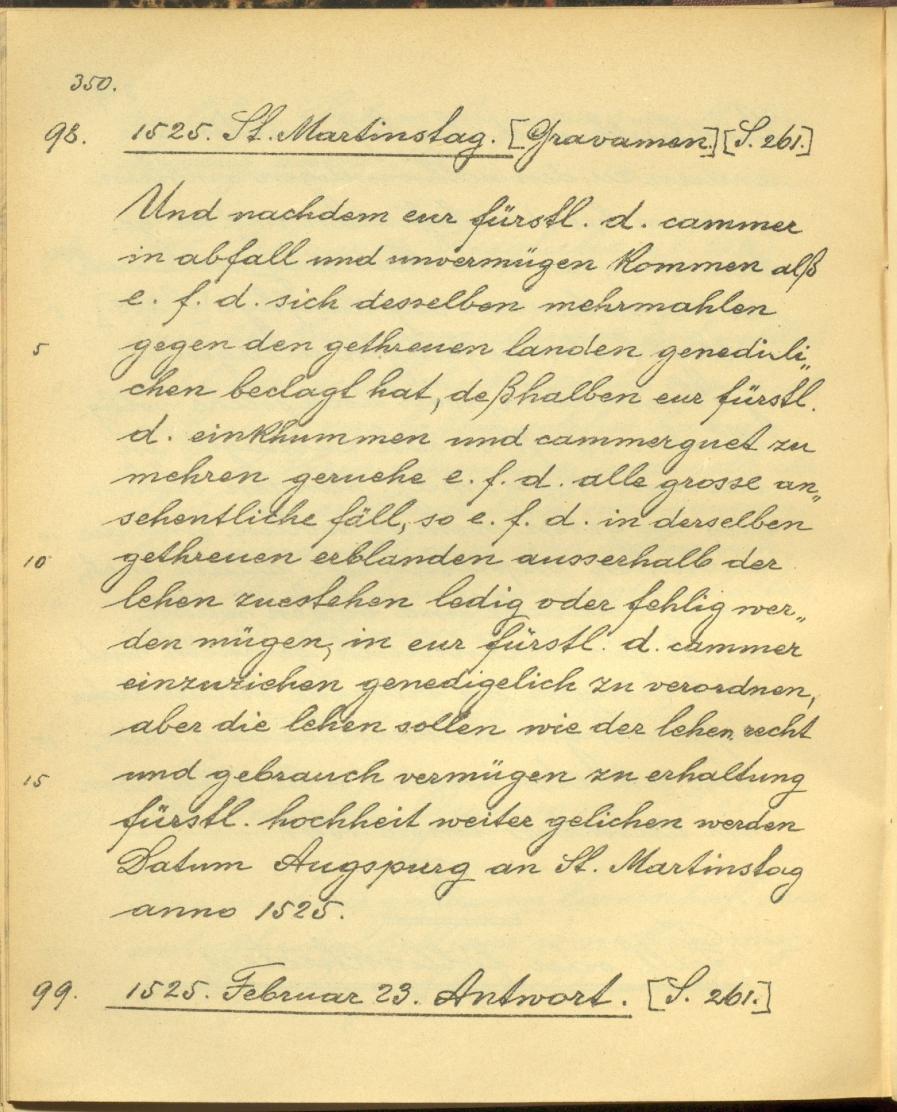 350.
98. 1525. St. Martinstag. [Gravamen.] [S. 261.]
Und nachdem eur fürstl. d. cammer
in abfall und unvermügen kommen alß
e. f. d. sich desselben mehrmahlen
5 gegen den gethreuen landen genedicli„
chen beclagt hat, deßhalben eur fürstl.
d. einkhummen und cammerguet zu
mehren geruehe e. f. d. alle grosse an„
sehentliche fäll, so e. f. d. in derselben
10 gethreuen erblanden ausserhalb der
lehen zuestehen ledig oder fehlig wer„
den mügen, in eur fürstl. d. cammer
einzuziehen genedigelich zu verordnen,
aber die lehen sollen wie der lehen recht
15 und gebrauch vermügen zu erhaltung
fürstl. hochheit weiter gelichen werden
Datum Augspurg an St. Martinstag
anno 1525.
99. 1525. Februar 23. Antwort. [S. 261.]